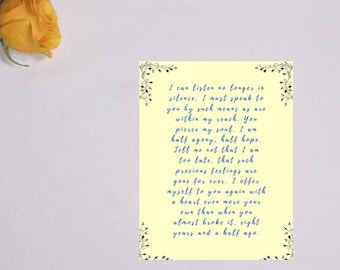 I can listen no longer in
silence. I must speak to
you by such means as are
within my reach. You
pierce my soul. I am
half agony, half hope.
Tell me not that I am
too late, that such
precious feelings are
gone for ever. I offer
myself to you again with
a heart even more your
own than when you
almost broke it, eight
years and a half ago.